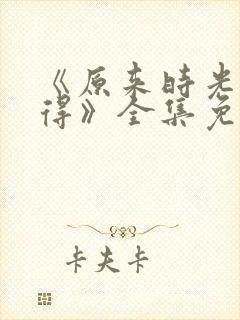 《原来时光
得》全集免
卡夫卡